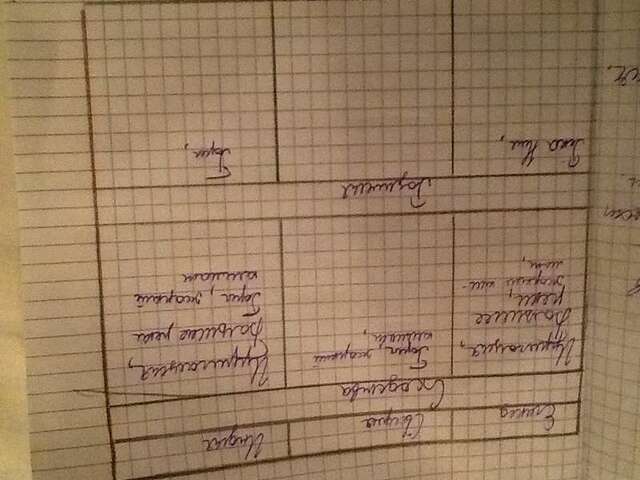 Египед Сирия Индия
Сходства
Ирригация,
Большие
реки,
жаркий кли-
мат,
Горы, жаркий
климат,
Ирригация,
Большие реки
Горы, жаркий
климат
Различия
Река Нил,
Горы,